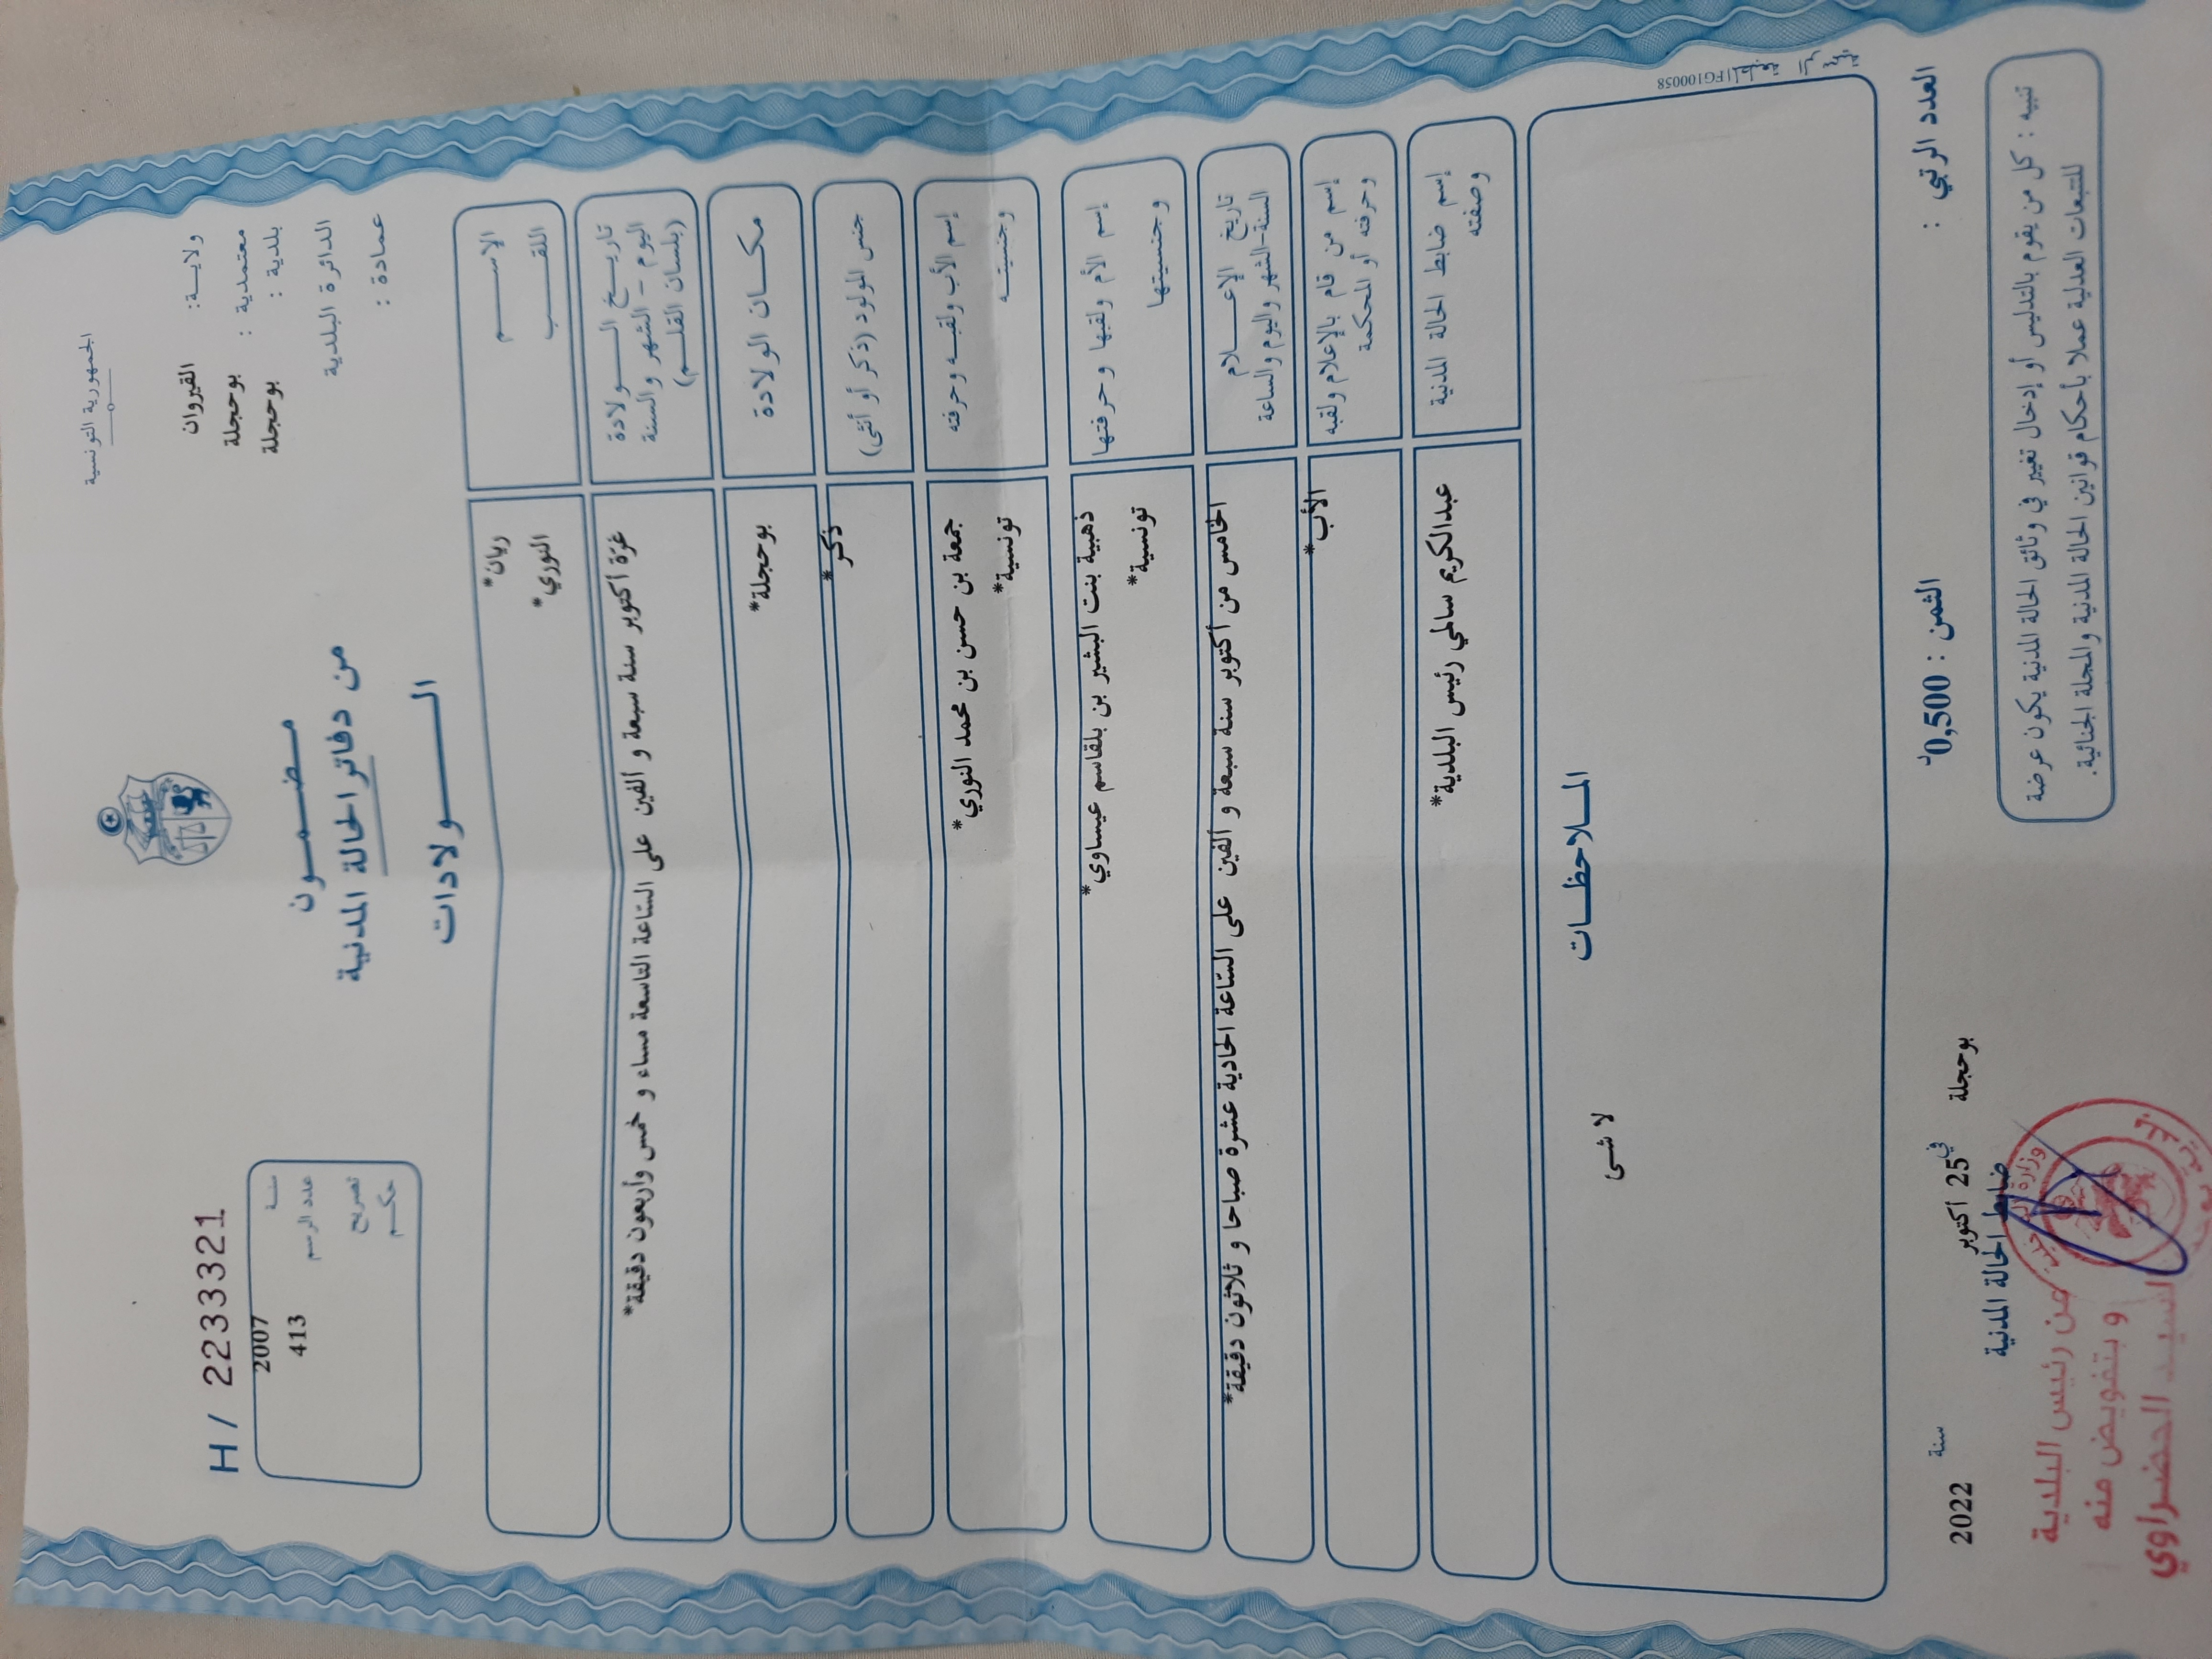 الجمهورية التونسية
ولاية: القيروان
معتمدية : بوحجلة
بلدية : بوحجلة
الدائرة البلدية
عمادة :
H/ 2233321
سنة 2007
عدد الرسم 413
تصريح
حكم
مضمون
من دفاتر الحالة المدنية
الولادات
الاسم ريان*
اللقب النوري*
تاريخ الولادة
اليوم - الشهر والسنة
(بلسان القلم)
غرّة أكتوبر سنة سبعة و ألفين على السّاعة التاسعة مساء و خمس وأربعون دقيقة*
مكان الولادة بوحجلة*
جنس المولود (ذكر أو أنثى) ذكر*
إسم الأب ولقبه وحرفته جمعة بن حسن بن محمد النوري*
وجنسيته تونسية*
إسم الأم ولقبها وحرفتها ذهبية بنت البشير بن بلقاسم عيساوي*
وجنسيتها تونسية*
تاريخ الإعلام
السنة-الشهر واليوم والساعة
الخامس من أكتوبر سنة سبعة و ألفين على السّاعة الحادية عشرة صباحا و ثلاثون دقيقة*
إسم من قام بالإعلام ولقبه الأب*
وحرفته أو المحكمة
إسم ضابط الحالة المدنية عبدالكريم سالمي رئيس البلدية*
وصفته
الملاحظات
لا شىء
FG100058
العدد الرتبي :
الثمن : 0,500د
بوحجلة في 25 أكتوبر سنة 2022
ضابط الحالة المدنية
تنبيه : كل من يقوم بالتدليس أو إدخال تغيير في وثائق الحالة المدنية يكون عرضة
للتبعات العدلية عملا بأحكام قوانين الحالة المدنية والمجلة الجنائية.
عن رئيس البلدية
و بتفويض منه
السيد الحضراوي